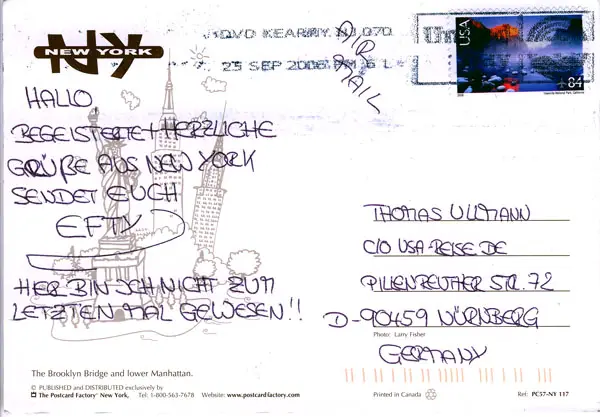 NY
NEW YORK
DVD KEARNY NJ 070
25 SEP 2006 PM 6 L
AIR
MAIL
USA
84
HALLO,
BEGEISTERTE + HERZLICHE
GRÜßE AUS NEW YORK
SENDET EUCH
EFTY
HIER BIN ICH NICHT ZUM
LETZTEN MAL GEWESEN!!
THOMAS ULLMANN
C/O USA-REISE.DE
PILLENREUTHER STR. 72
D-90459 NÜRNBERG
Photo: Larry Fisher
GERMANY
The Brooklyn Bridge and lower Manhattan.
© PUBLISHED and DISTRIBUTED exclusively by
The Postcard Factory™ New York, Tel: 1-800-563-7678 Website: www.postcardfactory.com
Printed in Canada
Ref: PC57-NY 117